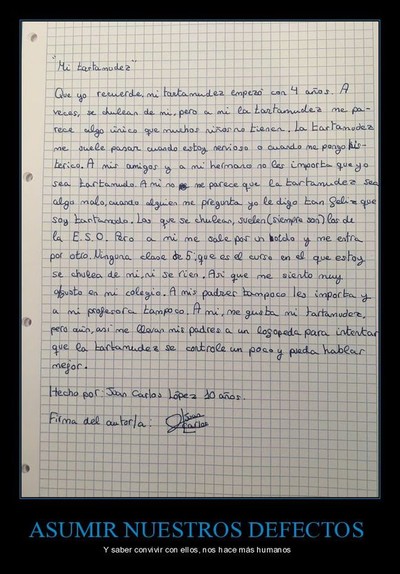 "Mi tartamudez"
Que yo recuerde, mi tartamudez empezó con 4 años. A
veces, se chulean de mi, pero a mi la tartamudez me pa-
rece algo único que muchos niños no tienen. La tartamudez
me suele pasar cuando estoy nervioso o cuando me pongo his-
térico. A mis amigos y a mi hermano no les importa que yo
sea tartamudo. A mi no me parece que la tartamudez sea
algo malo, cuando alguien me pregunta yo le digo tan feliz que
soy tartamudo. Los que se chulean, suelen (siempre son) los de
la E.S.O. Pero a mi me sale por un oido y me entra
por otro. Ninguna clase de 5, que es el curso en el que estoy
se chulea de mi, ni se ríen. Asi que me siento muy
agusto en mi colegio. A mis padres tampoco les importa y
a mi profesora tampoco. A mi, me gusta mi tartamudez,
pero aún, así me llevan mis padres a un logopeda para intentar
que la tartamudez se controle un poco y pueda hablar
mejor.
Hecho por: Juan Carlos López 10 años.
Firma del autor/a: Juan
Carlos
ASUMIR NUESTROS DEFECTOS
Y saber convivir con ellos, nos hace más humanos